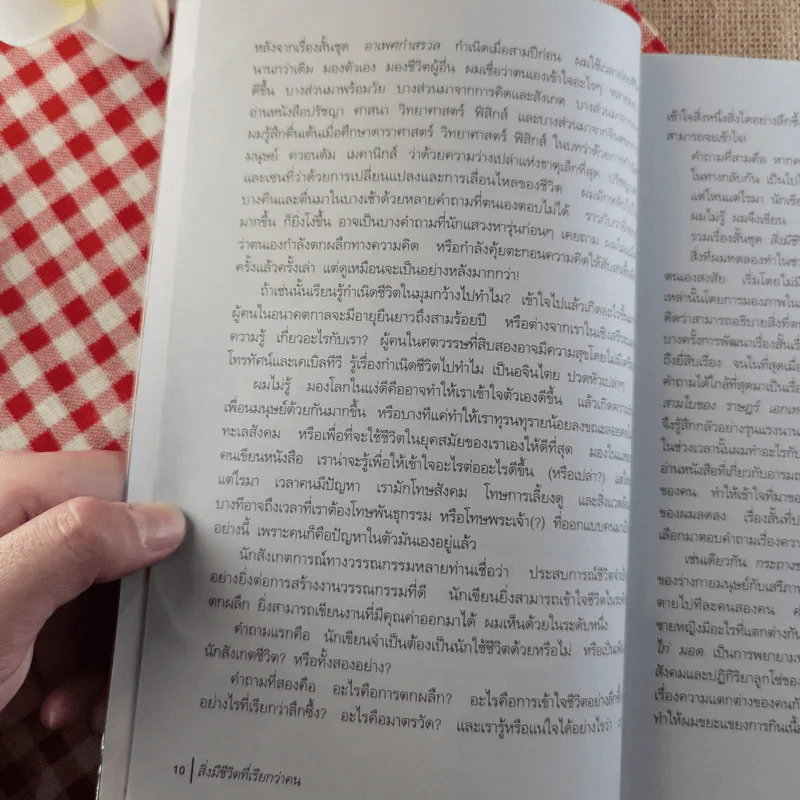 หลังจากเรื่องสั้นชุด อาเพศกำสรวล กำเนิดเมื่อสามปีก่อน ผมใช้เวลา
นานกว่าเดิม มองตัวเอง มองชีวิตผู้อื่น ผมเชื่อว่าตนเองเข้าใจอะไรๆ หลาย
ดีขึ้น บางส่วนมาพร้อมวัย บางส่วนมาจากการคิดและสังเกต บางส่วนมาจาก
อ่านหนังสือปรัชญา ศาสนา วิทยาศาสตร์ ฟิสิกส์ และบางส่วนมาจาก
ผมรู้สึกตื่นเต้นเมื่อศึกษาดาราศาสตร์ วิทยาศาสตร์ ฟิสิกส์ ในบทว่าด้วย
มนุษย์ ควอนตัม เมคานิกส์ ว่าด้วยความว่างเปล่าแห่งธาตุเล็กที่สุด ปรัชญา
และเซนที่ว่าด้วยการเปลี่ยนแปลงและการเลื่อนไหลของชีวิต ผมมักหลับไป
บางคืนและตื่นมาในบางเช้าด้วยหลายคำถามที่ตนเองตอบไม่ได้ ราวกับว่า
มากขึ้น ก็ยิ่งโง่ขึ้น อาจเป็นบางคำถามที่นักแสวงหารุ่นก่อนๆ เคยถาม
ว่าตนเองกำลังตกผลึกทางความคิด หรือกำลังคุ้ยตะกอนความคิดให้สับสนขึ้น
ครั้งแล้วครั้งเล่า แต่ดูเหมือนจะเป็นอย่างหลังมากกว่า!
ถ้าเช่นนั้นเรียนรู้กำเนิดชีวิตในมุมกว้างไปทำไม? เข้าใจไปแล้วเกิดอะไรขึ้น
ผู้คนในอนาคตกาลจะมีอายุยืนยาวถึงสามร้อยปี หรือต่างจากเราในเชิงสรีระ
ความรู้ เกี่ยวอะไรกับเรา? ผู้คนในศตวรรษที่สิบสองอาจมีความสุขโดยไม่มี
โทรทัศน์และเคเบิลทีวี รู้เรื่องกำเนิดชีวิตไปทำไม เป็นอจินไตย ปวดหัวเปล่าๆ
ผมไม่รู้ มองโลกในแง่ดีคืออาจทำให้เราเข้าใจตัวเองดีขึ้น แล้วเกิดความ
เพื่อนมนุษย์ด้วยกันมากขึ้น หรือบางทีแค่ทำให้เราทุรนทุรายน้อยลงขณะลอยคอ
ทะเลสังคม หรือเพื่อที่จะใช้ชีวิตในยุคสมัยของเราเองให้ดีที่สุด มองในแง่ของ
คนเขียนหนังสือ เราน่าจะรู้เพื่อให้เข้าใจอะไรต่ออะไรดีขึ้น (หรือเปล่า?)
แต่ไรมา เวลาคนมีปัญหา เรามักโทษสังคม โทษการเลี้ยงดู และสิ่งแวดล้อม
บางทีอาจถึงเวลาที่เราต้องโทษพันธุกรรม หรือโทษพระเจ้า(?) ที่ออกแบบคนมา
อย่างนี้ เพราะคนก็คือปัญหาในตัวมันเองอยู่แล้ว
นักสังเกตการณ์ทางวรรณกรรมหลายท่านเชื่อว่า ประสบการณ์ชีวิต
อย่างยิ่งต่อการสร้างงานวรรณกรรมที่ดี นักเขียนยิ่งสามารถเข้าใจชีวิตใน
ตกผลึก ยิ่งสามารถเขียนงานที่มีคุณค่าออกมาได้ ผมเห็นด้วยในระดับหนึ่ง
คำถามแรกคือ นักเขียนจำเป็นต้องเป็นนักใช้ชีวิตด้วยหรือไม่ หรือเป็น
นักสังเกตชีวิต? หรือทั้งสองอย่าง?
คำถามที่สองคือ อะไรคือการตกผลึก? อะไรคือการเข้าใจชีวิตอย่างลึกซึ้ง
อย่างไรที่เรียกว่าลึกซึ้ง? อะไรคือมาตรวัด? และเรารู้หรือแน่ใจได้อย่างไรว่า
10 สิ่งมีชีวิตที่เรียกว่าคน
เข้าใจสิ่งหนึ่งสิ่งใดอย่างลึกซึ้ง
สามารถจะเข้าใจ!
คำถามที่สามคือ หาก
ในทางกลับกัน เป็นไป
แต่ไหนแต่ไรมา นักเขีย
ผมไม่รู้ ผมจึงเขียน
รวมเรื่องสั้นชุด สิ่งมีชี
สิ่งที่ผมทดลองทำในช่ว
ตนเองสงสัย เริ่มโดยไม่มี
เหล่านั้นโดยการมองภาพใน
คิดว่าสามารถอธิบายสิ่งที่
บางครั้งการพัฒนาเรื่องสั้น
ถึงยี่สิบเรื่อง จนในที่สุดเมื่อ
คำถามได้ใกล้ที่สุดมาเป็นเรื่อ
สามใบของ ราษฎร์ เอกเท
จึงรู้สึกกลัวอย่างรุนแรง
ในช่วงเวลานั้นผมทำอะไรกับ
อ่านหนังสือที่เกี่ยวกับอารม
ของคน ทำให้เข้าใจที่มาของ
ของผมลดลง เรื่องสั้นที่
เลือกมาตอบคำถามเรื่องความ
เช่นเดียวกัน กระถาง
ของร่างกายมนุษย์กับเสรีภา
ตายไปทีละคนสองคน
ชายหญิงมีอะไรที่แตกต่างกัน
ไก่ มอด เป็นการพยายาม
สังคมและปฏิกิริยาลูกโซ่ของ
เรื่องความแตกต่างของคนกั
ทำให้ผมขยะแขยงการกินเนื้อ